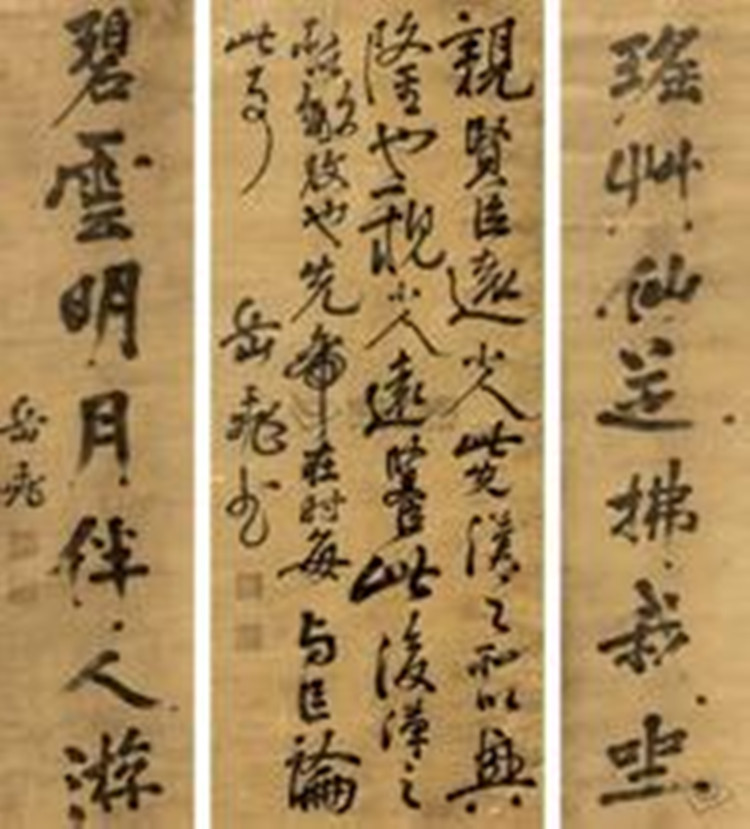 瑤艸仙芝拂我坐
親賢臣遠小人此先漢之所以興
隆也親小人遠賢臣此後漢之
所以傾頹也先帝在时每与臣論
此事
岳飛书
碧雲明月伴人游
岳飛